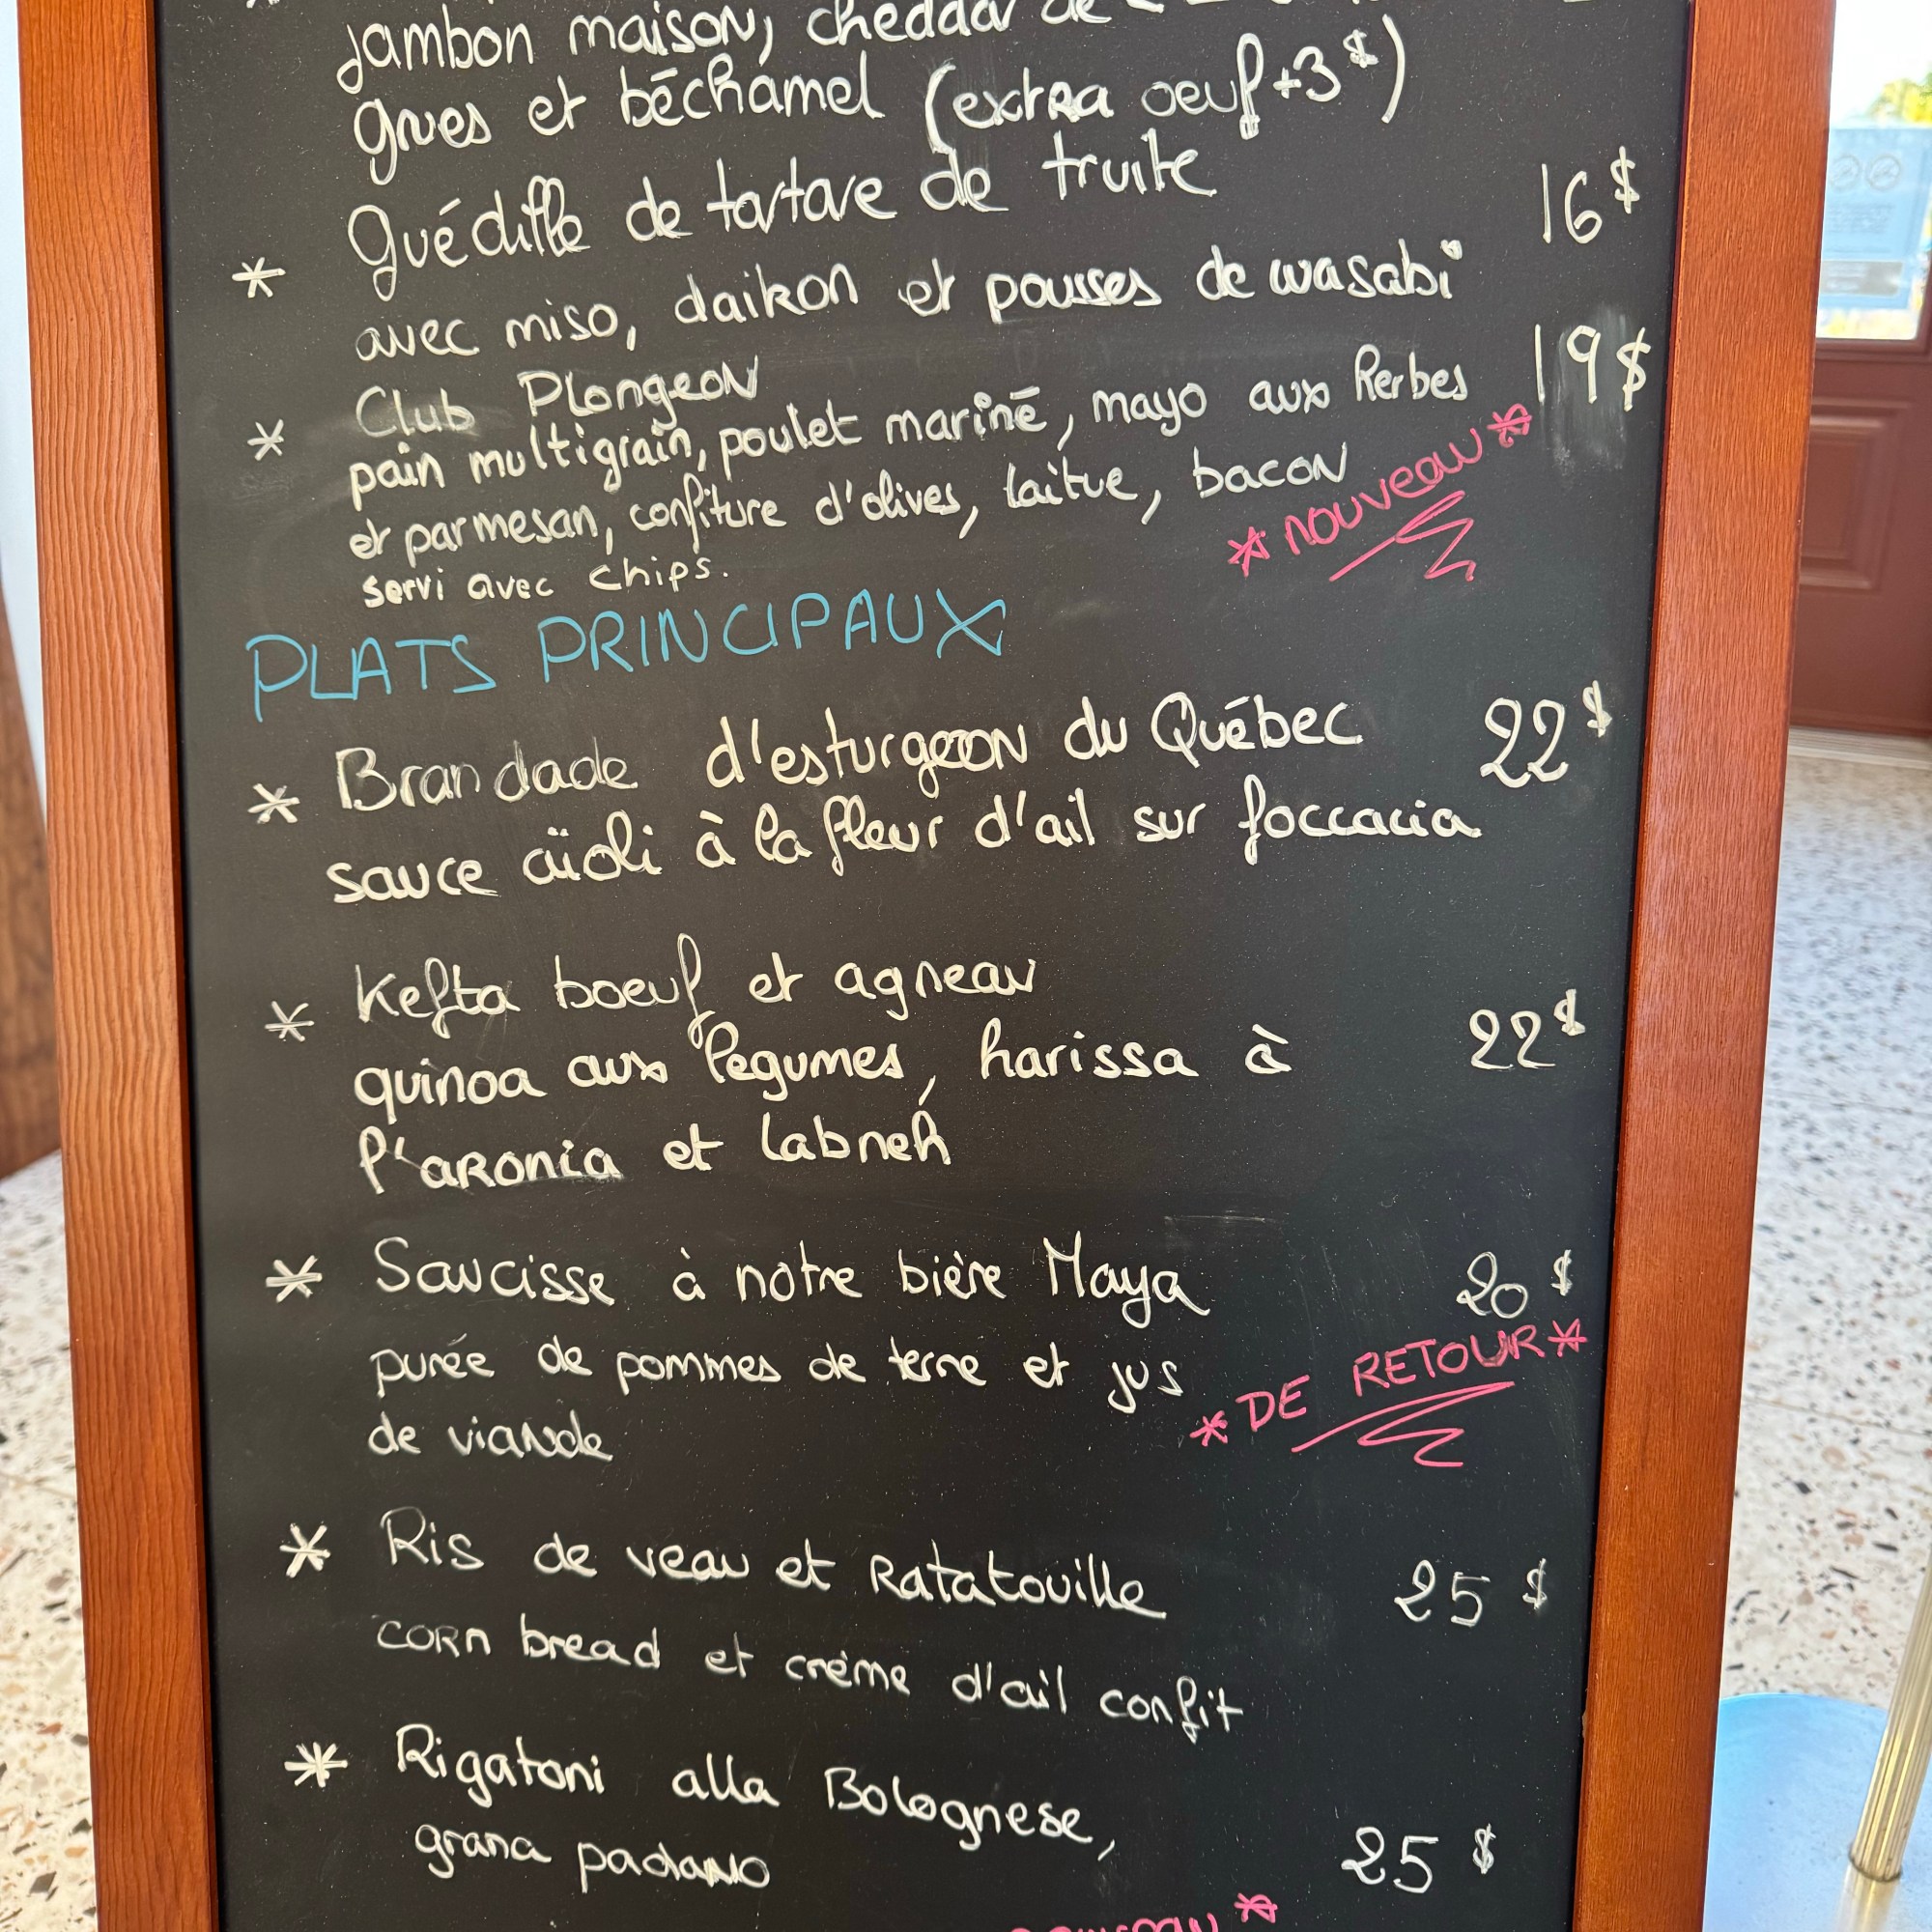 jambon maison, cheddar de
grues et béchamel (extra oeuf +3$)
* Guédille de tartare de truite 16$
avec miso, daikon et pousses de wasabi
* Club Plongeon 19$
pain multigrain, poulet mariné, mayo aux herbes
et parmesan, confiture d'olives, laitue, bacon
servi avec chips.
* NOUVEAU *
PLATS PRINCIPAUX
* Brandade d'esturgeon du Québec 22$
sauce aïoli à la fleur d'ail sur foccacia
* Kefta boeuf et agneau
quinoa aux légumes, harissa à 22$
l'aronia et labneh
* Saucisse à notre bière Maya 20$
purée de pommes de terre et jus
de viande
* DE RETOUR *
* Ris de veau et Ratatouille 25$
corn bread et crème d'ail confit
* Rigatoni alla Bolognese,
grana padano 25$